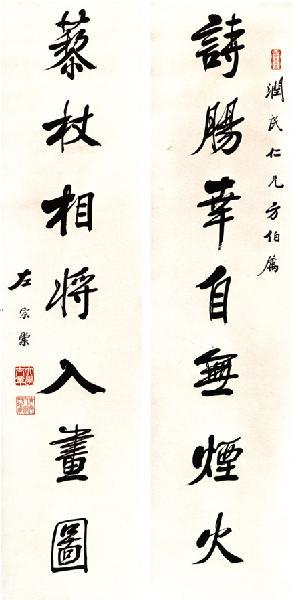 潤民仁兄方伯屬
詩腸幸自無煙火
藜杖相将入畫圖
左宗棠